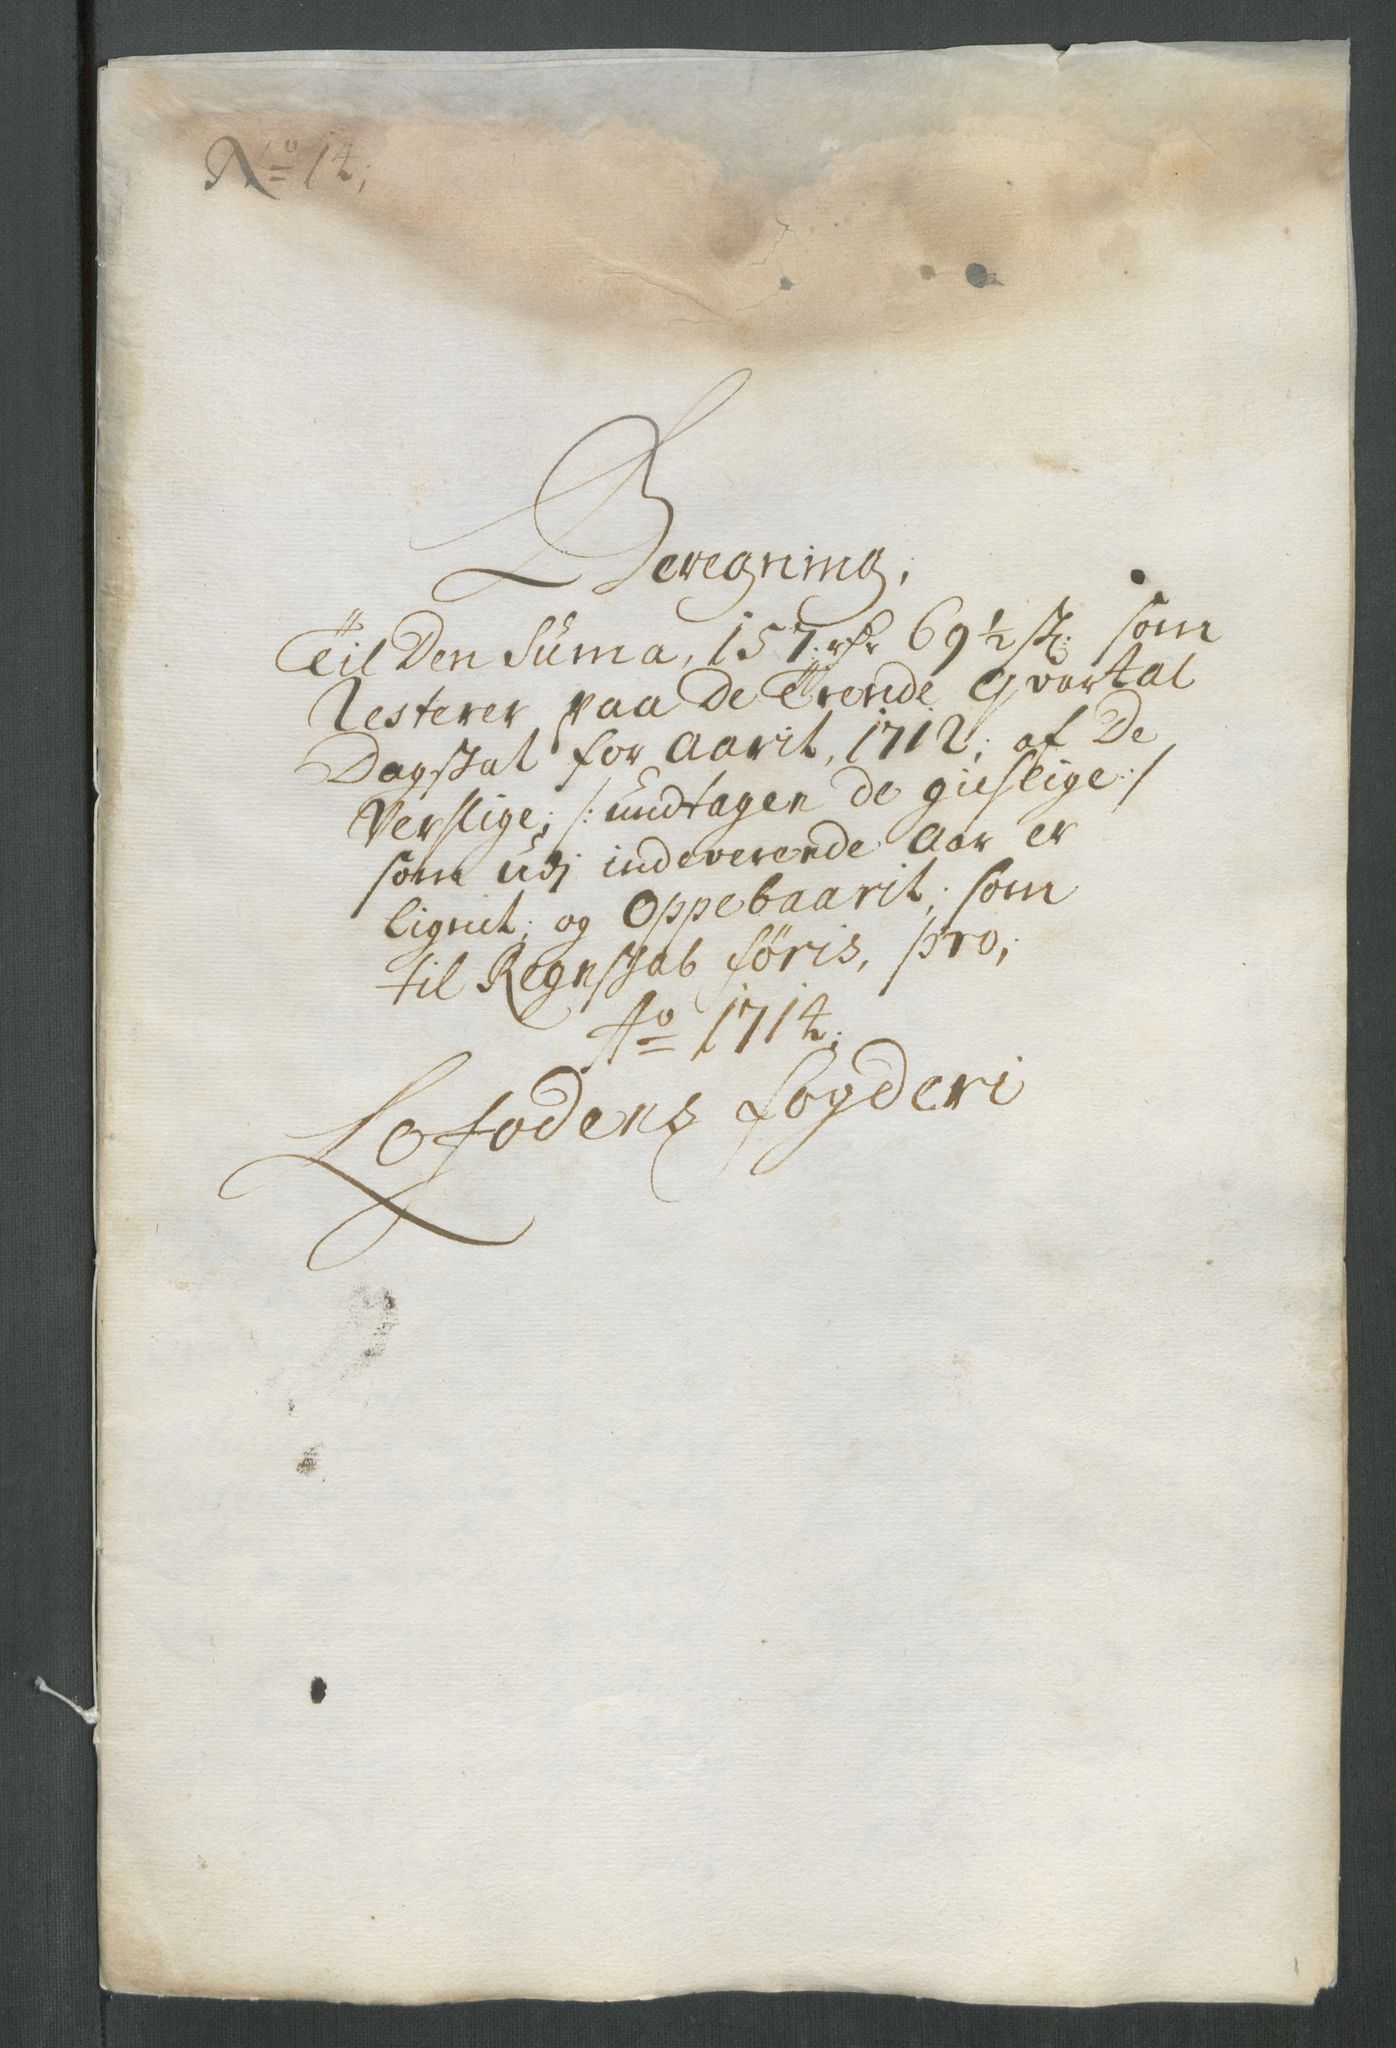 No 14;
Beregning,
Til Den Suma, 157 rdr 69 ½ sk: som
Resterer paa De Trende Qvartal
Dagskat for Aarit, 1712; af De
Verslige; /: undtagen de gieslige :/
som udj indeverende Aar er
lignet; og Oppebaarit; som
til Regnskab føris, pro;
Ao 1714;
Lofodens fogderi